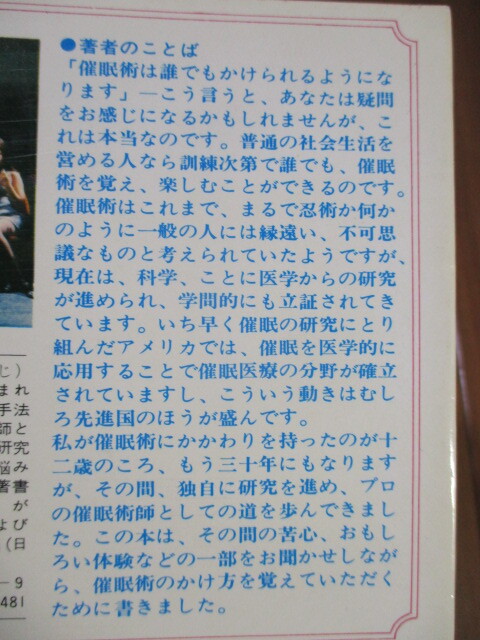 ●著者のことば
「催眠術は誰でもかけられるようにな
ります」―こう言うと、あなたは疑問
をお感じになるかもしれませんが、こ
れは本当なのです。普通の社会生活を
営める人なら訓練次第で誰でも、催眠
術を覚え、楽しむことができるのです。
催眠術はこれまで、まるで忍術か何か
のように一般の人には縁遠い、不可思
議なものと考えられていたようですが、
現在は、科学、ことに医学からの研究
が進められ、学問的にも立証されてき
ています。いち早く催眠の研究にとり
組んだアメリカでは、催眠を医学的に
応用することで催眠医療の分野が確立
されていますし、こういう動きはむし
ろ先進国のほうが盛んです。
私が催眠術にかかわりを持ったのが十
二歳のころ、もう三十年にもなります
が、その間、独自に研究を進め、プロ
の催眠術師としての道を歩んできまし
た。この本は、その間の苦心、おもし
ろい体験などの一部をお聞かせしなが
ら、催眠術のかけ方を覚えていただく
ために書きました。
じ)
まれ
手法
師と
研究
悩み
著書
が
よび
(日
―9
481